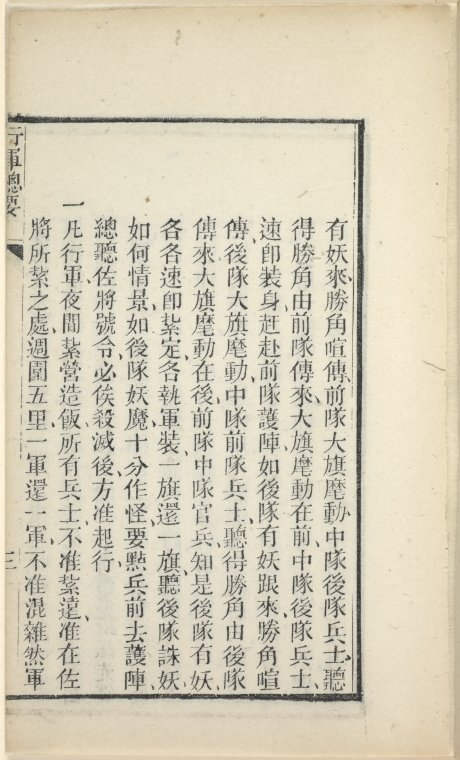 有妖來勝角喧傳前隊大旗麾動中隊後隊兵士聽
得勝角由前隊傳來大旗麾動在前中隊後隊兵士
速卽裝身赶赴前隊護陣如後隊有妖跟來勝角喧
傳後隊大旗麾動中隊前隊兵士聽得勝角由後隊
傳來大旗麾動在後前隊中隊官兵知是後隊有妖
各各速卽紮定各執軍裝一旗還一旗聽後隊誅妖
如何情景如後隊妖魔十分作怪要㸃兵前去護陣
總聽佐將號令必俟殺滅後方准起行
一凡行軍夜間紮營造飯所有兵士不准紮遠准在佐
將所紮之處週圍五里一軍還一軍不准混雜然軍
行軍總要
三